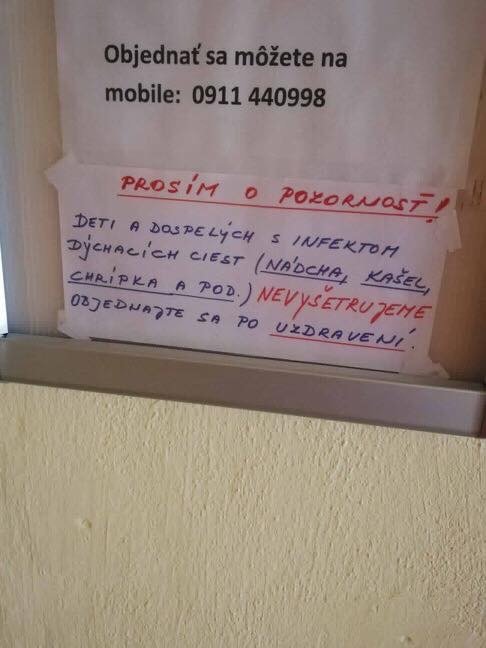 Objednať sa môžete na
mobile: 0911 440998
PROSÍM O POZORNOSŤ!
DETI A DOSPELÝCH S INFEKTOM
DÝCHACÍCH CIEST (NÁDCHA, KAŠEL,
CHRÍPKA A POD.) NEVYŠETRUJEME
OBJEDNAJTE SA PO UZDRAVENÍ!